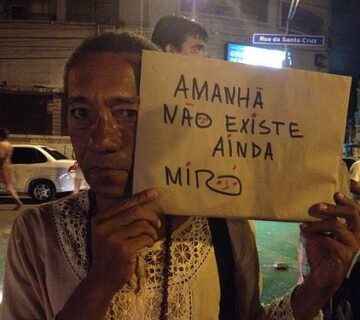 Rua da Santa Cruz
AMANHÃ
NÃO EXISTE
AINDA
MIRÓ